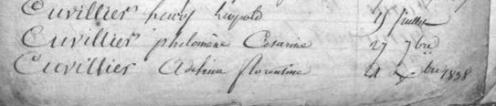 Cuvillier henry leopold 15 Juillet
Cuvillier philomène Cesarine 27 7bre
Cuvillier Adelina florentine 21 bre 1838